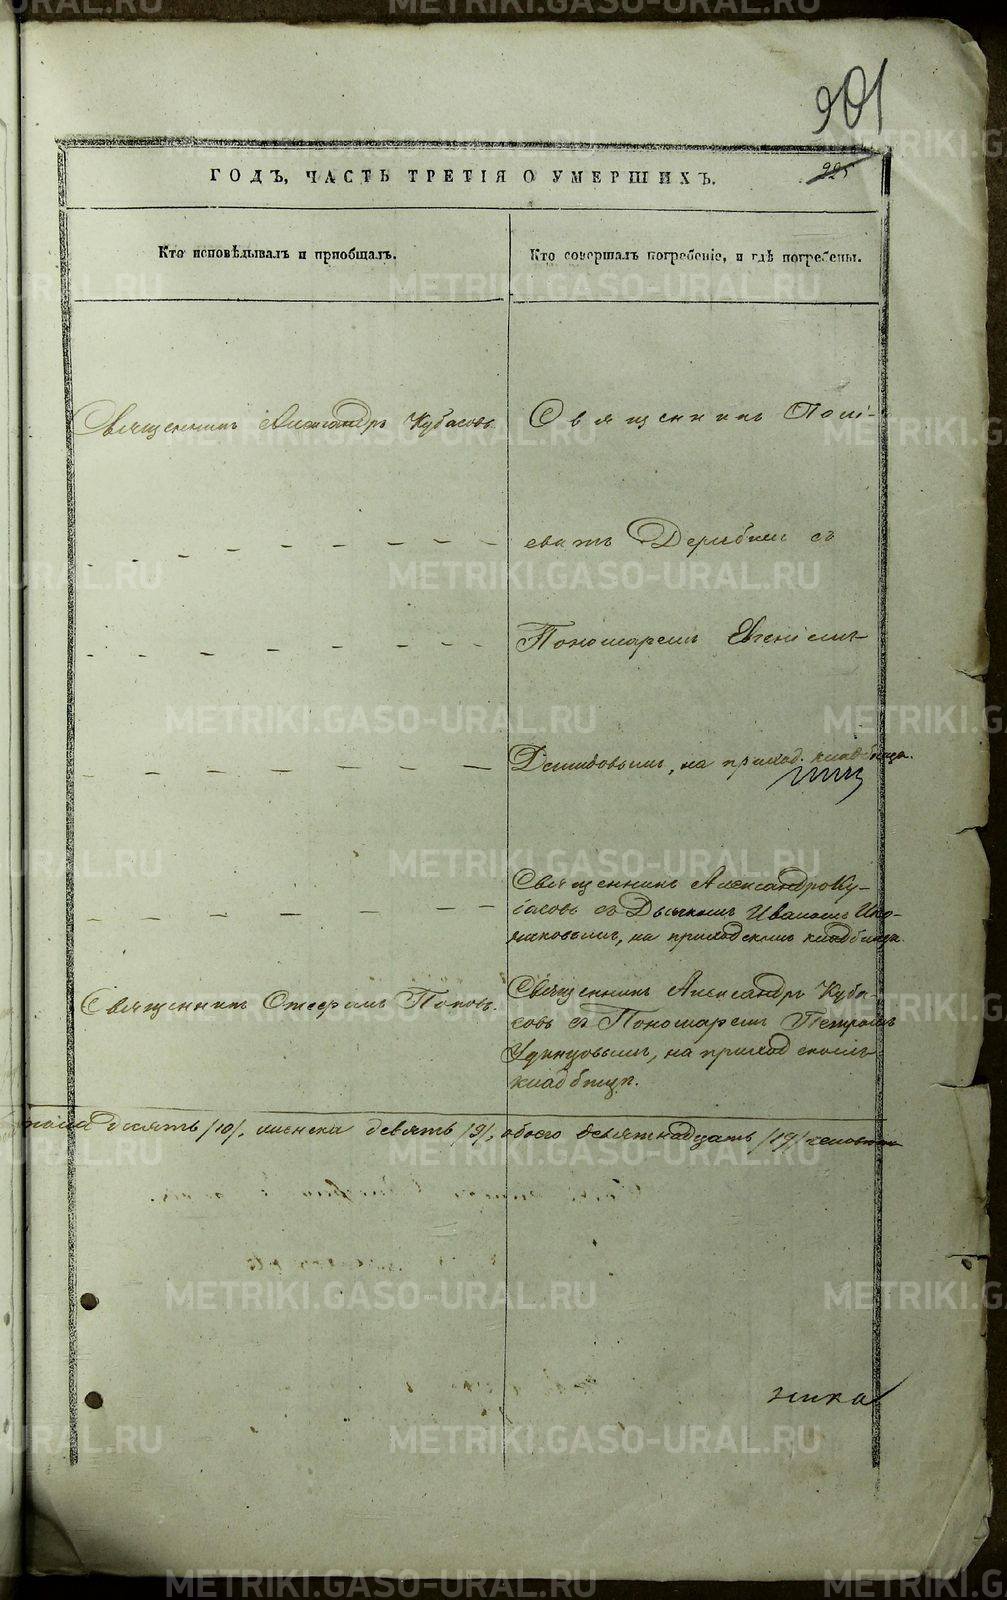 901
225
ГОДЪ, ЧАСТЬ ТРЕТІЯ О УМЕРШИХЪ.
Кто исповѣдывалъ и пріобщалъ.
Кто совершалъ погребеніе, и гдѣ погребены.
Священникъ Александръ Кубасовъ
Священникъ Полі-
евктъ Дерябинъ съ
Пономаремъ Евгеніемъ
Демидовымъ, на приход. кладбищѣ.
Священникъ Александръ Ку-
басовъ съ Дьячкомъ Иваномъ
на приходскомъ кладбищѣ.
Священникъ Поповъ.
Священникъ Александръ Куба-
совъ съ Пономаремъ Петромъ
Удинцовымъ, на приходскомъ
кладбищѣ.
пола десять /10/, женска девять /9/, обоего девятнадцать /19/ человѣкъ
ника
METRIKI.GASO-URAL.RU